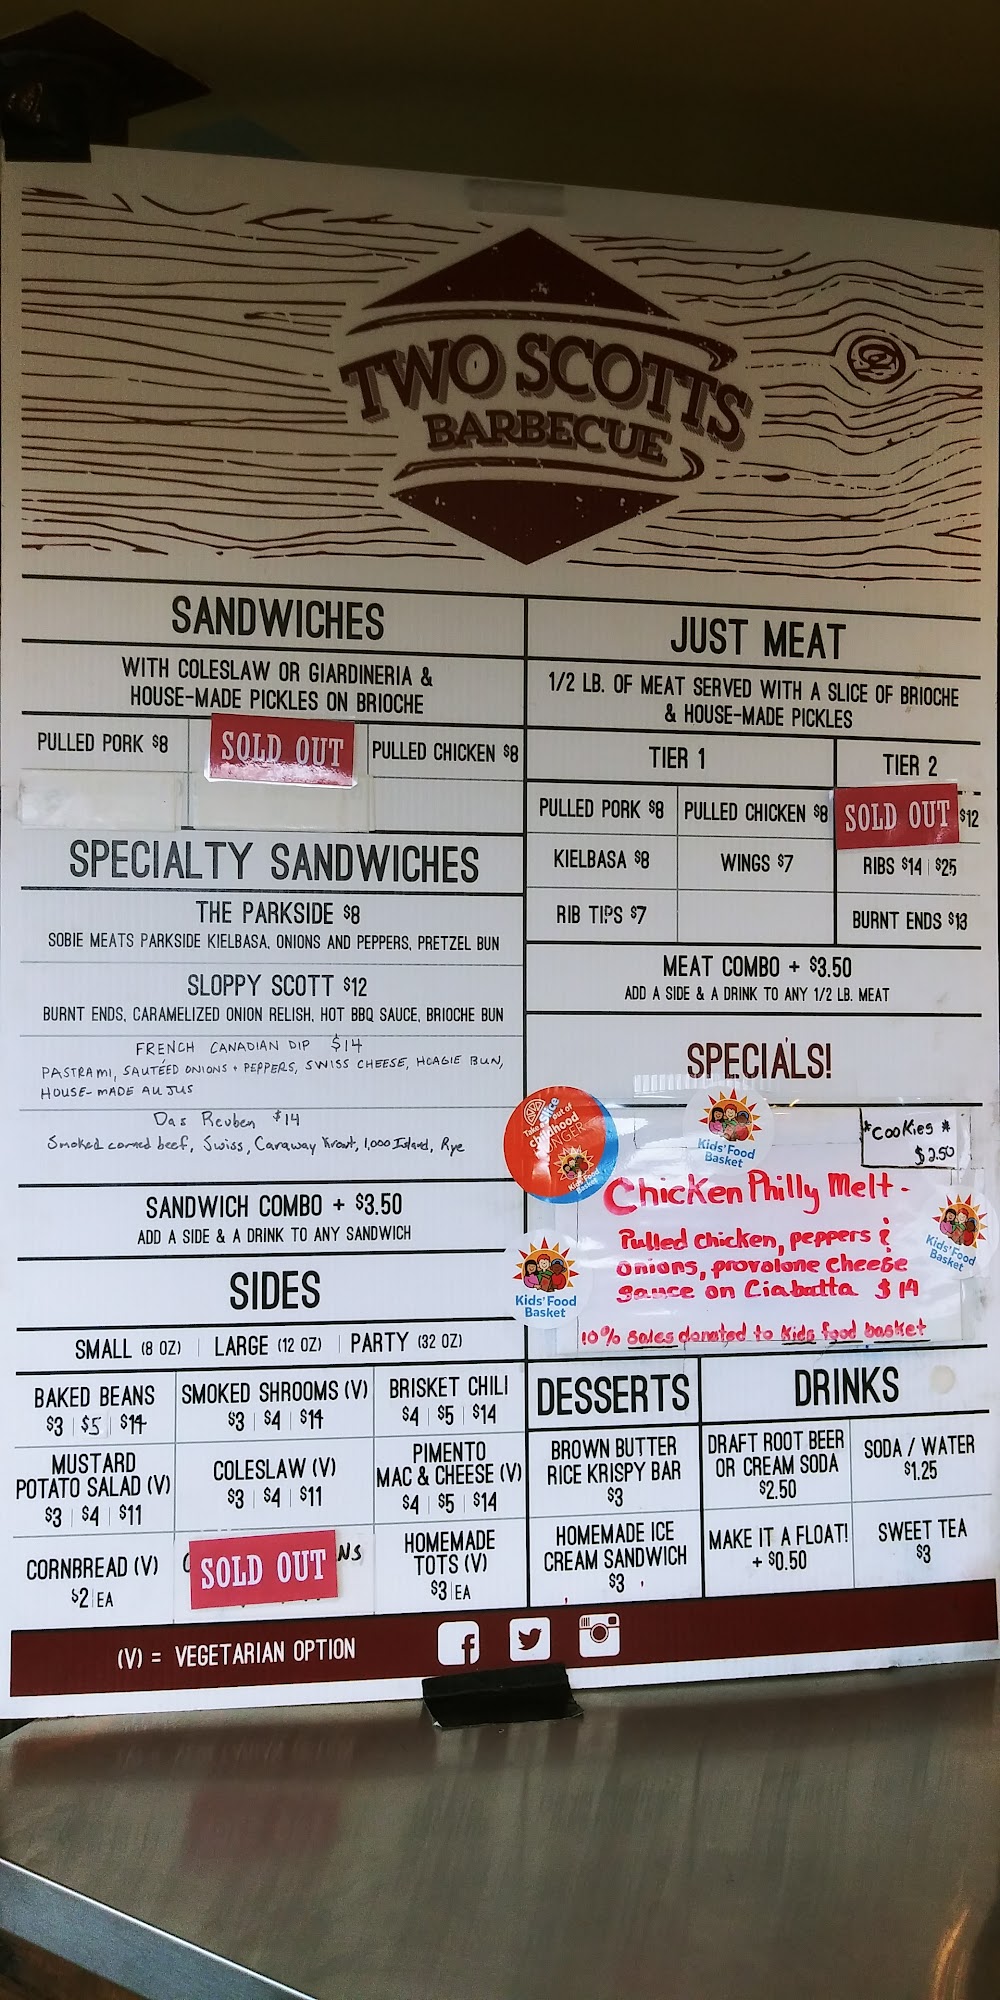 TWO SCOTTS
BARBECUE
SANDWICHES
WITH COLESLAW OR GIARDINERIA &
HOUSE-MADE PICKLES ON BRIOCHE
PULLED PORK $8
SOLD OUT
PULLED CHICKEN $8
SPECIALTY SANDWICHES
THE PARKSIDE $8
SOBIE MEATS PARKSIDE KIELBASA, ONIONS AND PEPPERS, PRETZEL BUN
SLOPPY SCOTT $12
BURNT ENDS, CARAMELIZED ONION RELISH, HOT BBQ SAUCE, BRIOCHE BUN
FRENCH CANADIAN DIP $14
PASTRAMI, SAUTÉED ONIONS + PEPPERS, SWISS CHEESE, HOAGIE BUN,
HOUSE-MADE AU JUS
Das Reuben $14
Smoked corned beef, Swiss, Caraway Kraut, 1,000 Island, Rye
SANDWICH COMBO + $3.50
ADD A SIDE & A DRINK TO ANY SANDWICH
JUST MEAT
1/2 LB. OF MEAT SERVED WITH A SLICE OF BRIOCHE
& HOUSE-MADE PICKLES
TIER 1
TIER 2
PULLED PORK $8
PULLED CHICKEN $8
SOLD OUT $12
KIELBASA $8
WINGS $7
RIBS $14 | $25
RIB TIPS $7
BURNT ENDS $13
MEAT COMBO + $3.50
ADD A SIDE & A DRINK TO ANY 1/2 LB. MEAT
SPECIALS!
Take a slice
out of
childhood
HUNGER
Kids' Food
Basket
Kids' Food
Basket
*Cookies*
$2.50
Chicken Philly Melt-
Pulled chicken, peppers &
onions, provolone cheese
sauce on Ciabatta $14
10% sales donated to Kids food basket
Kids' Food
Basket
Kids' Food
Basket
SIDES
SMALL (8 OZ) | LARGE (12 OZ) | PARTY (32 OZ)
BAKED BEANS
$3 | $5 | $14
SMOKED SHROOMS (V)
$3 | $4 | $14
BRISKET CHILI
$4 | $5 | $14
MUSTARD
POTATO SALAD (V)
$3 | $4 | $11
COLESLAW (V)
$3 | $4 | $11
PIMENTO
MAC & CHEESE (V)
$4 | $5 | $14
CORNBREAD (V)
$2 | EA
SOLD OUT
NS
HOMEMADE
TOTS (V)
$3 | EA
DESSERTS
BROWN BUTTER
RICE KRISPY BAR
$3
HOMEMADE ICE
CREAM SANDWICH
$3
DRINKS
DRAFT ROOT BEER
OR CREAM SODA
$2.50
SODA / WATER
$1.25
MAKE IT A FLOAT!
+ $0.50
SWEET TEA
$3
(V) = VEGETARIAN OPTION